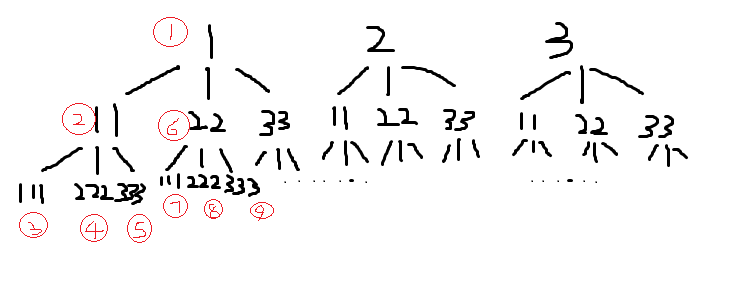 ① 1 2 3
② 11 ⑥ 22 33 11 22 33 11 22 33
111 222 333 111 222 333 ......... ......
③ ④ ⑤ ⑦ ⑧ ⑨